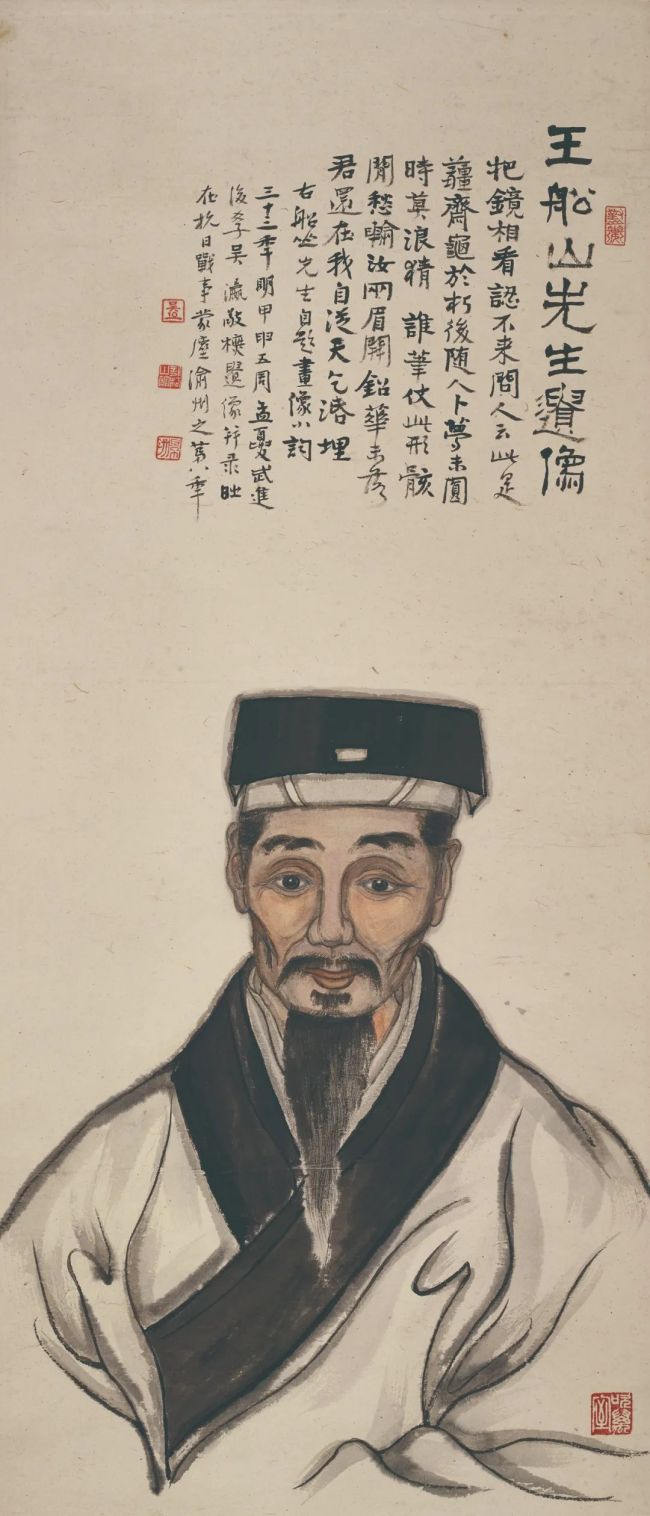 王船山先生遺像
把鏡相看認不来問人云此是
薑齋龜於朽後随人卜夢未圓
時莫浪猜 誰筆仗此形骸
閒愁輸汝兩眉開鉛華未落
君還在我自從天乞活埋
右船山先生自題畫像小詞
三十三年明甲申五周孟夏武進
後學吳瀛敬橅遺像并录
在抗日戰事蒙塵渝州之第八年